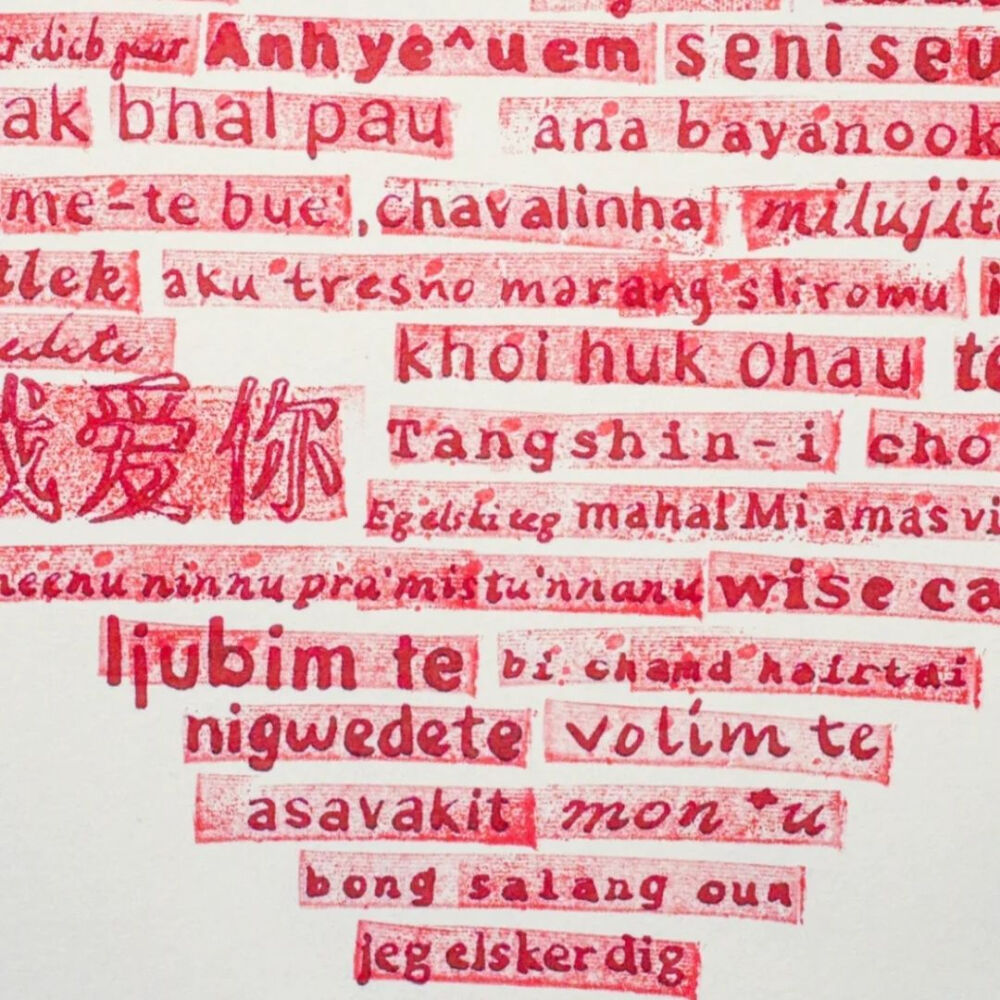 Anh ye^u em seni sev
ak bhal pau ana bayanook
me-te bue', chavalinha milujit
tlek aku tresno marang sliromu
edete khoi huk ohau te
我爱你 Tangshin-i cho
Eg elski ueg mahal Mi amas vi
neenu ninnu pra'mistu'nnanu wise ca
ljubim te bi chamd hairtai
nigwedete volím te
asavakit mon *u
bong salang oun
jeg elsker dig